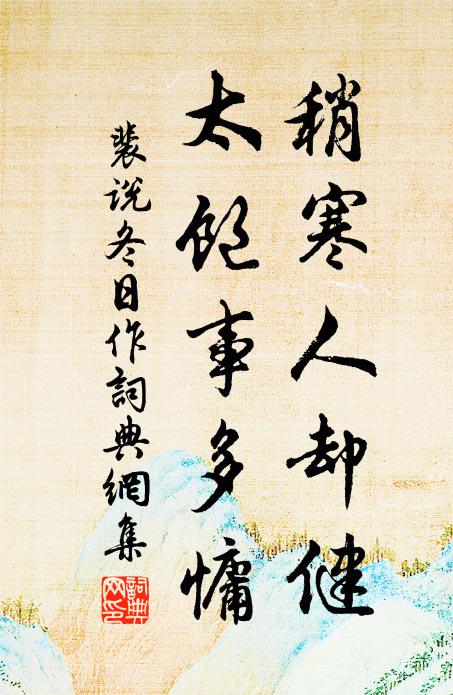 稍寒人却健
太飽事多慵
裴說冬日作詞典網集
詞典